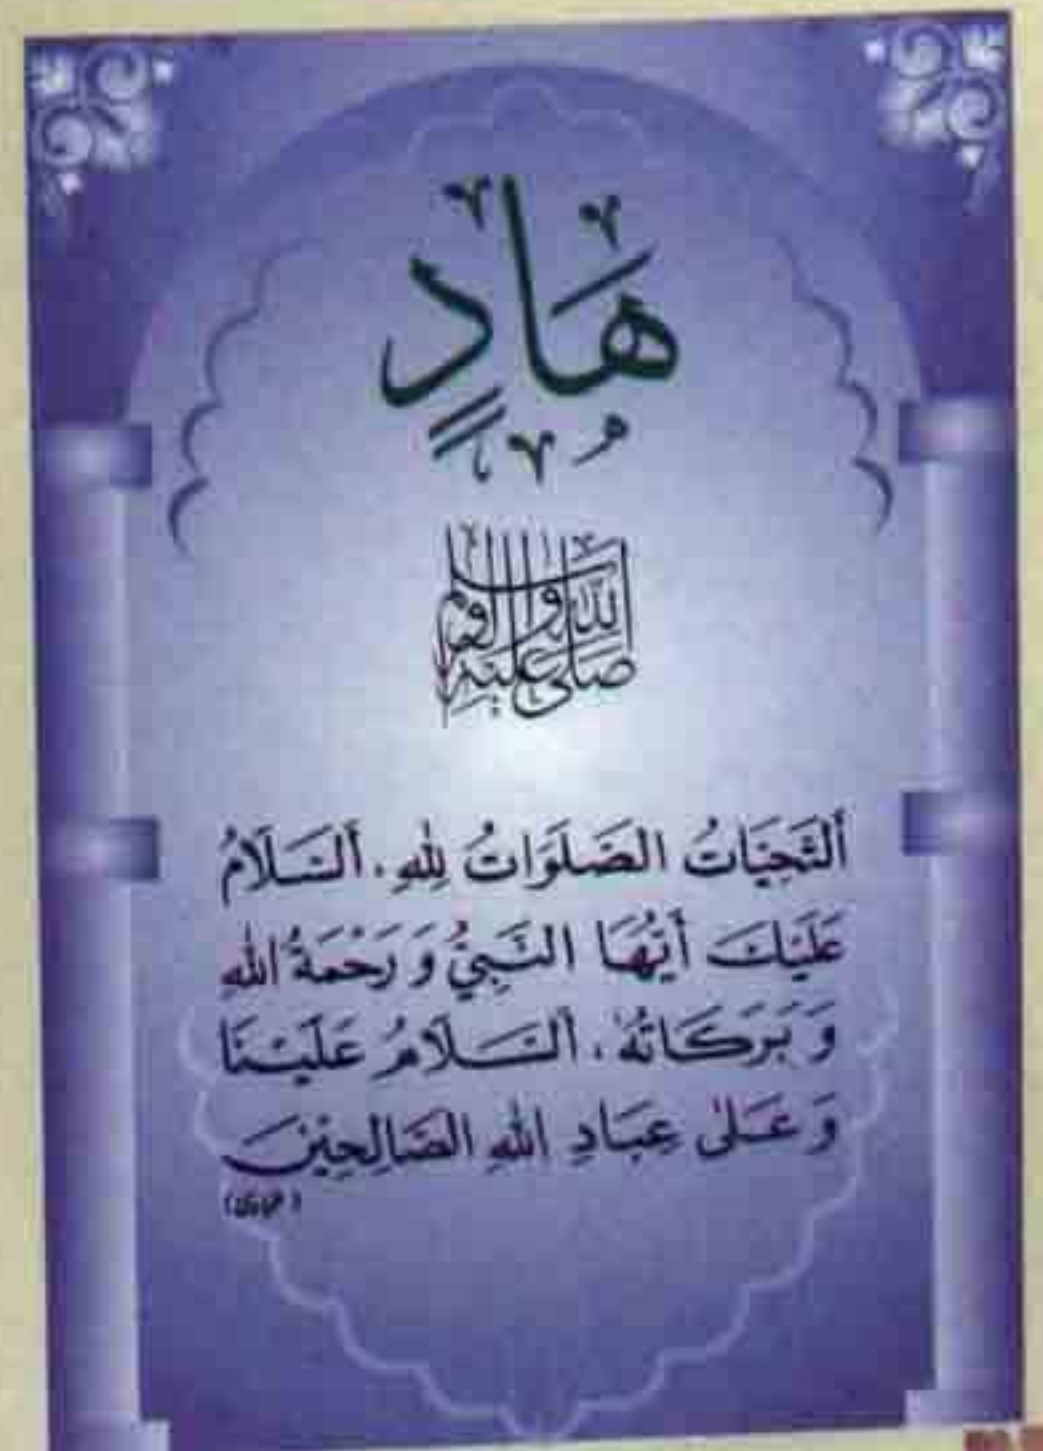 هَادٍ
صَلَّى اللّٰهُ عَلَيْهِ وَآلِهِ وَسَلَّم
أَلتَّحِيَّاتُ الصَّلَوَاتُ لِلّٰهِ، أَلسَّلَامُ
عَلَيْكَ أَيُّهَا النَّبِيُّ وَ رَحْمَةُ اللّٰهِ
وَ بَرَكَاتُهٗ، أَلسَّلَامُ عَلَيْنَا
وَ عَلٰى عِبَادِ اللّٰهِ الصَّالِحِيْنَ